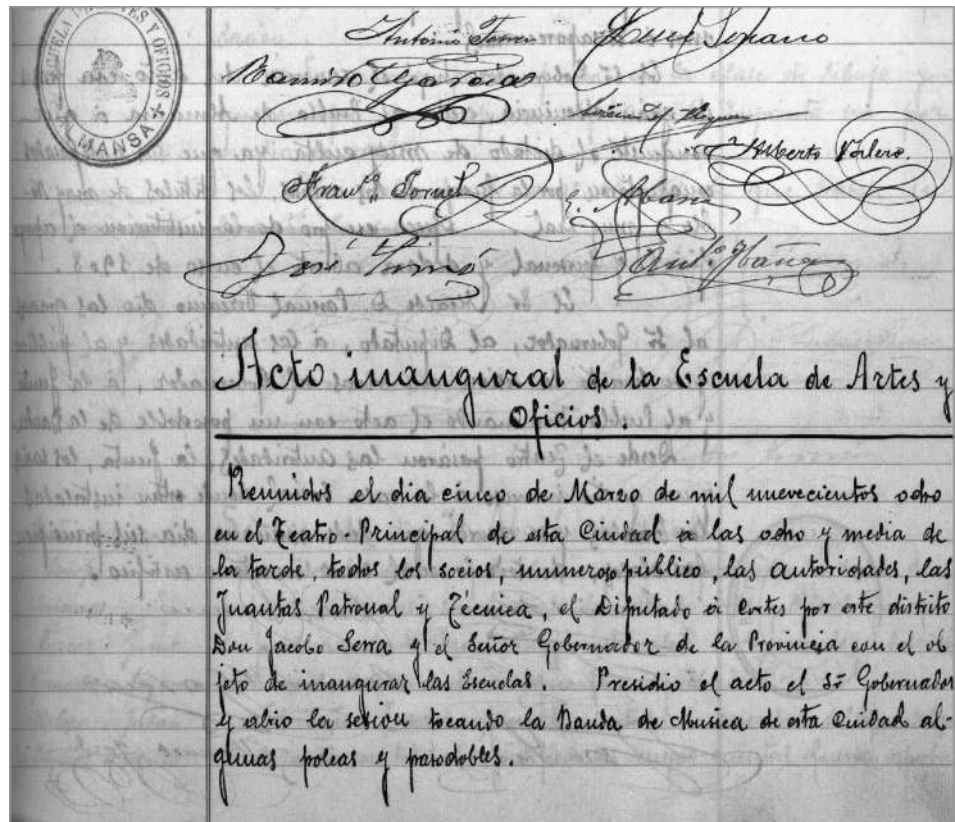 ESCUELA DE ARTES Y OFICIOS
ALMANSA
Antonio
Ramiro García
Alberto Valero.
José
Acto inaugural de la Escuela de Artes y
Oficios.
Reunidos el dia cinco de Marzo de mil nuevecientos ocho
en el Teatro-Principal de esta Ciudad á las ocho y media de
la tarde, todos los socios, numeroso público, las autoridades, las
Juantas Patronal y Técnica, el Diputado á Cortes por este distrito
Don Jacobo Serra y el Señor Gobernador de la Provincia con el ob
jeto de inaugurar las Escuelas. Presidio el acto el Sr Gobernador
y abrio la sesion tocando la Banda de Musica de esta Ciudad al-
gunas polcas y pasodobles.